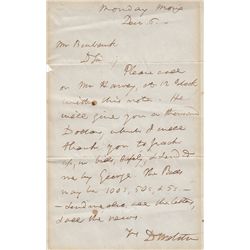 Monday Morng
Dear S.
Mr
D Sir
Please call
on Mr Harvey, at 12 o'clock
with this note. He
will give you a thousand
Dollars, which I will
thank you to pack
up, in bills, & send to
me by George. The Bills
may be 100s, 50s, & 5s -
- Send me also, all the letters,
& all the news
Yrs D Webster